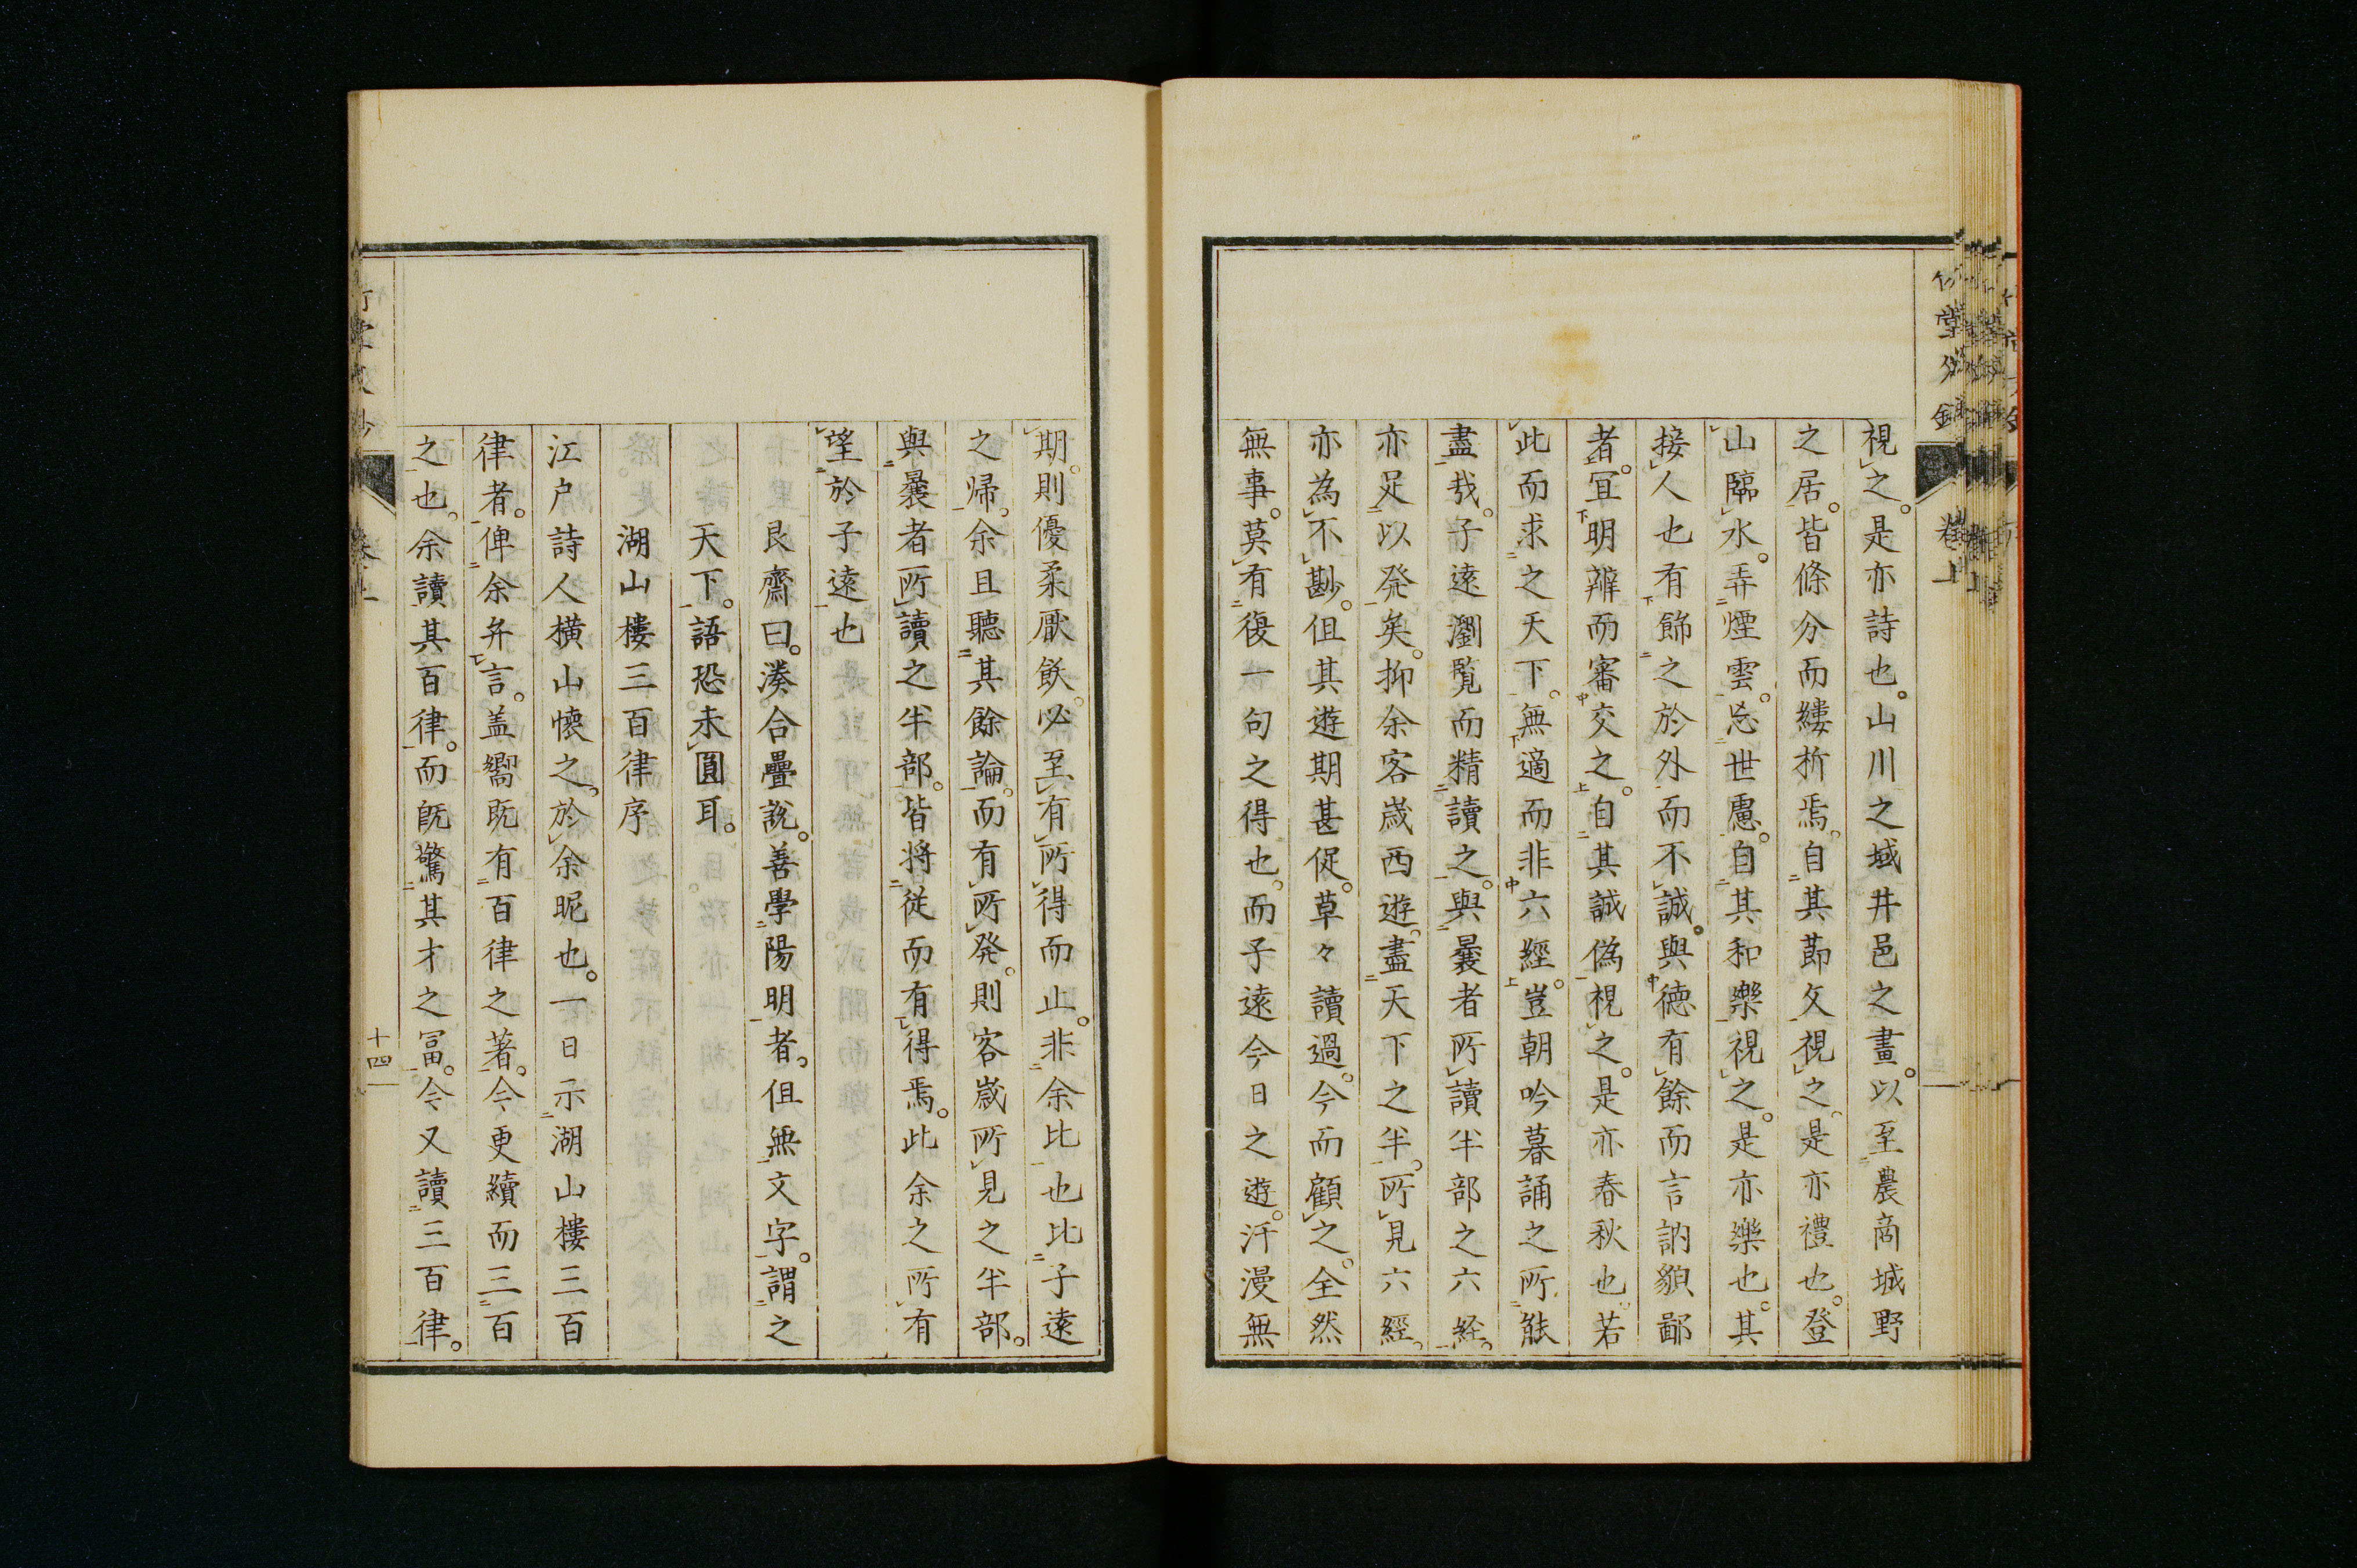 視之。是亦詩也。山川之域井邑之畫。以至農商城野
之居。皆條分而縷析焉。自其節文視之。是亦禮也。登
山臨水。弄煙雲。忘世慮。自其和樂視之。是亦樂也。其
接人也有飾之於外而不誠。與徳有餘而言訥貌鄙
者。冝明辨而審交之。自其誠偽視之。是亦春秋也若
此而求之天下。無適而非六經。豈朝吟暮誦之所能
盡哉。子遠瀏覧而精讀之。與曩者所讀半部之六経。
亦足以発矣。抑余客歳西遊。盡天下之半。所見六經。
亦為不尠。但其遊期甚促。草々讀過。今而顧之。全然
無事。莫有復一句之得也。而子遠今日之遊。汗漫無
期。則優柔厭飫。必至有所得而止。非余比也比子遠
之帰。余且聽其餘論。而有所発。則客歳所見之半部。
與曩者所讀之半部。皆将従而有得焉。此余之所有
望於子遠也
艮齋曰。湊合疊說。善學陽明者。但無文字。謂之
天下。語恐未圓耳。
湖山樓三百律序
江戸詩人横山懐之。於余昵也。一日示湖山樓三百
律者。俾余弁言。盖嚮既有百律之著。今更續而三百
之也。余讀其百律。而既驚其才之冨。今又讀三百律。
十四
巻上